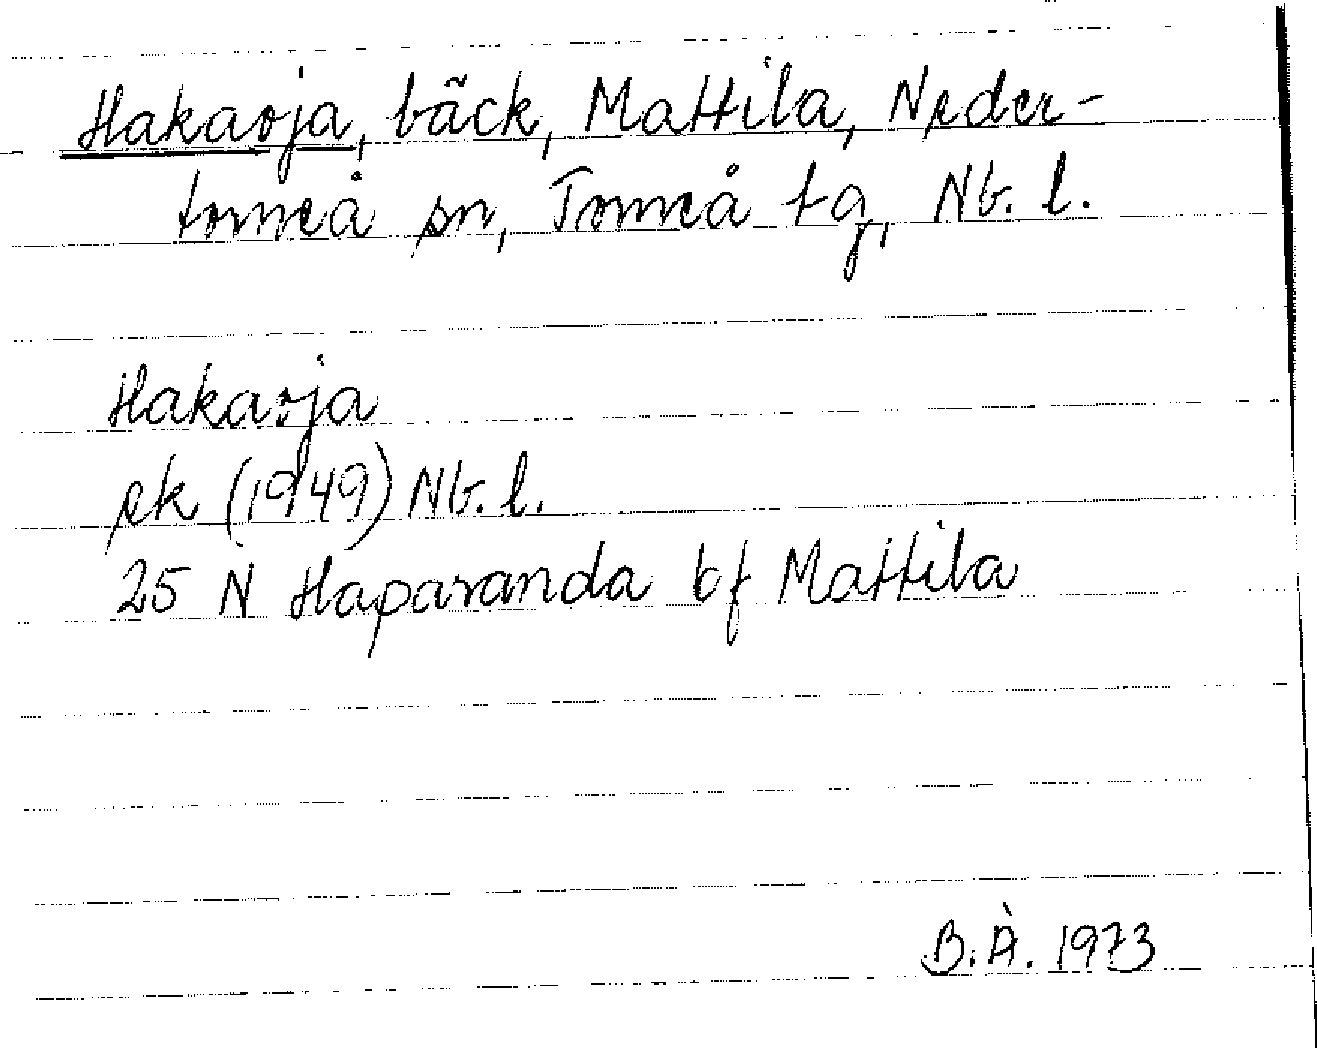 Hakaoja, bäck, Mattila, Neder-
torneå sn, Torneå tg, Nb. l.
Hakaoja
ek (1949) Nb. l.
25 N Haparanda bf Mattila
B.Å. 1973